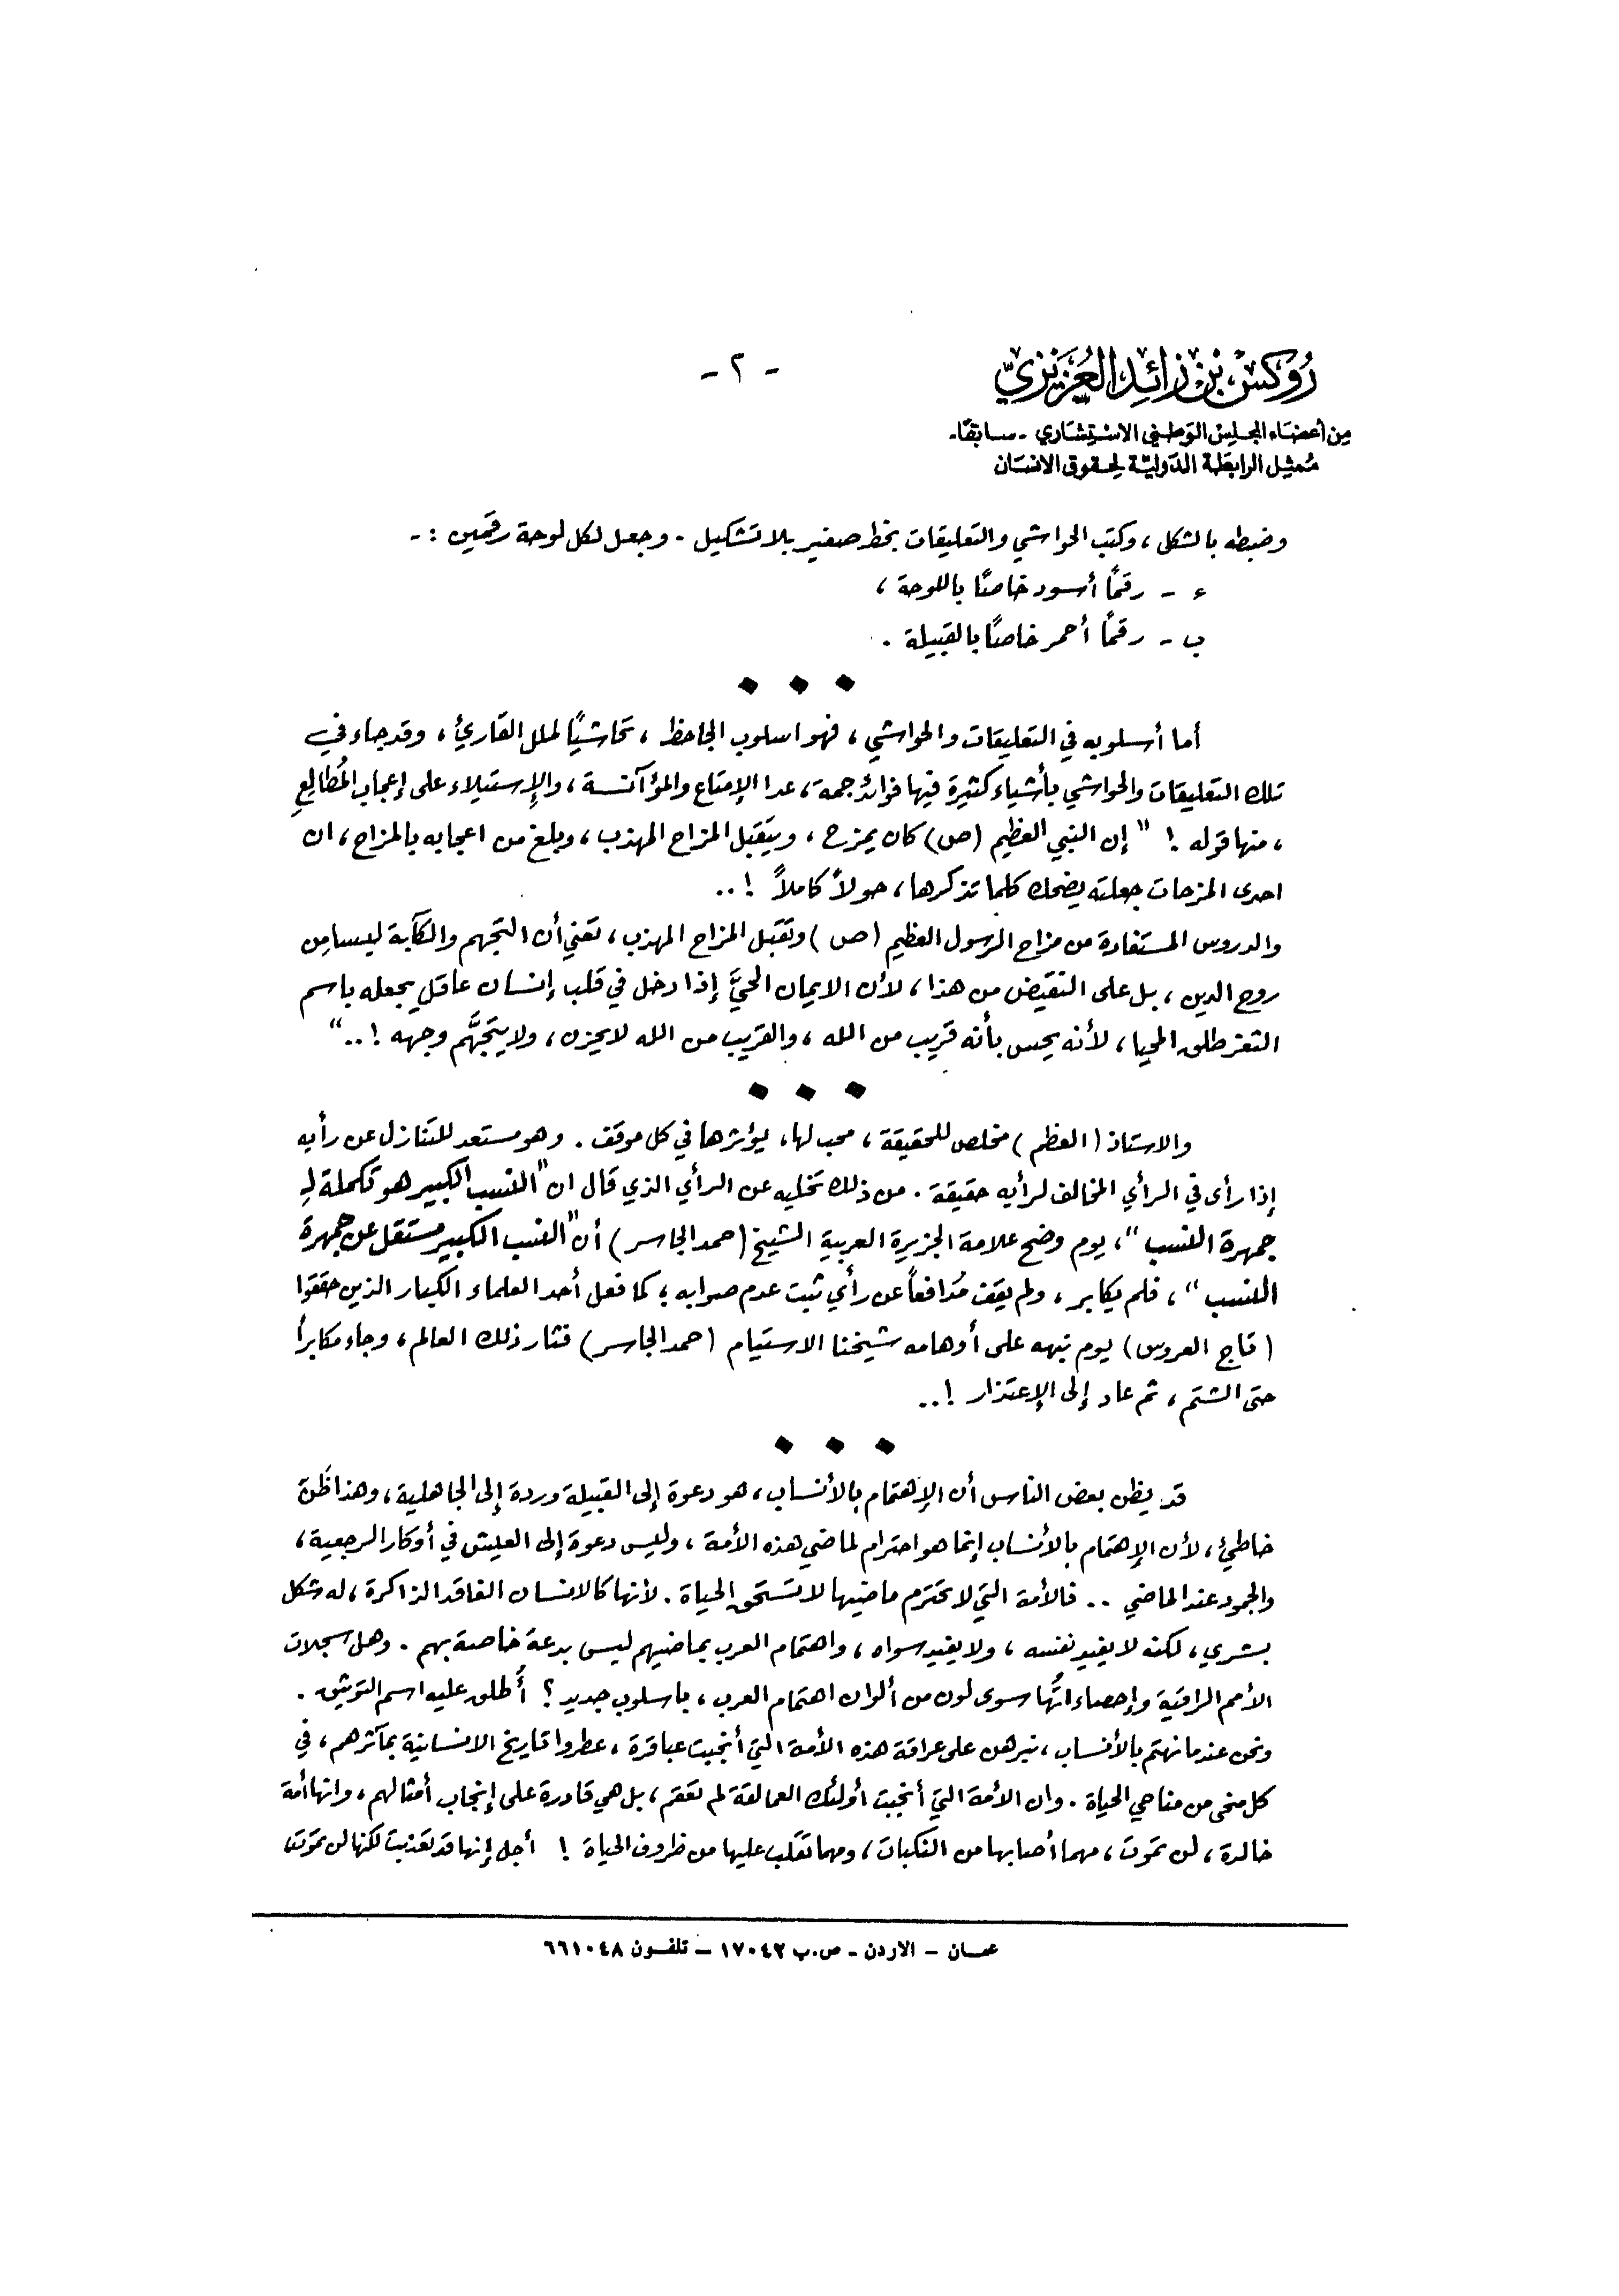 - ٢ -
رُوكس بن زائد العُزيزيّ
من أعضاء المجلس الوطني الاستشاري - سابقًا -
ممثل الرابطة الدولية لحقوق الانسان
وضبطه بالشكل ، وكتب الحواشي والتعليقات بخط صغير بلا تشكيل . وجعل لكل لوحة رقمين : -
ء - رقمًا أسود خاصًا باللوحة ،
ب - رقمًا أحمر خاصًا بالقبيلة .
أما أسلوبه في التعليقات والحواشي ، فهو اسلوب الجاحظ ، تحاشيًا لملل القارئ ، وقد جاء في
تلك التعليقات والحواشي بأشياء كثيرة فيها فوائد جمة ، عدا الإمتاع والمؤآنسة ، والإستيلاء على إعجاب المُطالِعِ
، منها قوله ! " إن النبي العظيم (ص) كان يمزح ، ويتقبل المزاح المهذب ، وبلغ من اعجابه بالمزاح ، ان
احدى المزحات جعلته يضحك كلما تذكرها ، حولاً كاملاً ! ..
والدروس المستفادة من مزاح الرسول العظيم (ص) وتقبل المزاح المهذب ، تعني أن التجهم والكآبة ليسا من
روح الدين ، بل على النقيض من هذا ، لأن الايمان الحيَّ إذا دخل في قلب إنسان عاقل يجعله باسم
الثغر طلق المحيا ، لأنه يحس بأنه قريب من الله ، والقريب من الله لا يحزن ، ولا يتجهَّم وجهه ! .. "
والاستاذ (العظم) مخلص للحقيقة ، محب لها ، يؤثرها في كل موقف . وهو مستعد للتنازل عن رأيه
إذا رأى في الرأي المخالف لرأيه حقيقة . من ذلك تخليه عن الرأي الذي قال ان " النسب الكبير هو تكملة لِـ
جمهرة النسب " ، يوم وضح علامة الجزيرة العربية الشيخ (حمد الجاسر) أن " النسب الكبير مستقل عن جمهرة
النسب " ، فلم يكابر ، ولم يقف مُدافعاً عن رأي ثبت عدم صوابه ؛ كما فعل أحد العلماء الكبار الذين حققوا
(تاج العروس) يوم نبهه على أوهامه شيخنا الاستيام (حمد الجاسر) فثار ذلك العالم ، وجاء مكابراً
حتى الشتم ، ثم عاد إلى الإعتذار ! ..
قد يظن بعض الناس أن الإهتمام بالأنساب ، هو دعوة إلى القبيلة وردة إلى الجاهلية ، وهذا ظَنٌّ
خاطئ ، لأن الإهتمام بالأنساب إنما هو احترام لماضي هذه الأمة ، وليس دعوة إلى العيش في أوكار الرجعية ،
والجمود عند الماضي .. فالأمة التي لا تحترم ماضيها لا تستحق الحياة . لأنها كالانسان الفاقد الذاكرة ، له شكل
بشري ، لكنه لا يفيد نفسه ، ولا يفيد سواه ، واهتمام العرب بماضيهم ليس بدعة خاصة بهم . وهل سجلات
الأمم الراقية وإحصاءاتُها سوى لون من ألوان اهتمام العرب ، باسلوب جديد ؟ أُطلق عليه اسم التوثيق .
ونحن عندما نهتم بالأنساب ، نبرهن على عراقة هذه الأمة التي أنجبت عباقرة ، عطروا تاريخ الانسانية بمآثرهم ، في
كل منحى من مناحي الحياة . وان الأمة التي أنجبت أولئك العمالقة لم تعقم ، بل هي قادرة على إنجاب أمثالهم ، وانها أمة
خالدة ، لن تموت ، مهما أصابها من النكبات ، ومهما تقلب عليها من ظروف الحياة ! أجل إنها قد تعذبت لكنها لن تموت
عمان - الاردن - ص.ب ١٧٠٤٢ - تلفون ٦٦١٠٤٨